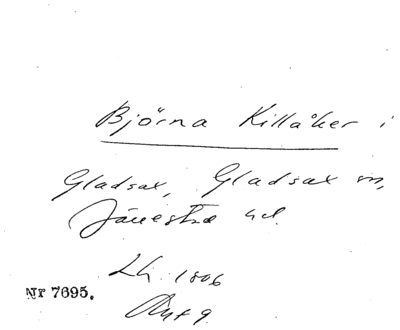 Björna Killåker i
Gladsax, Gladsax sn,
Järrestad hd.
Lh. 1806
Akt 9.
Nr 7695.